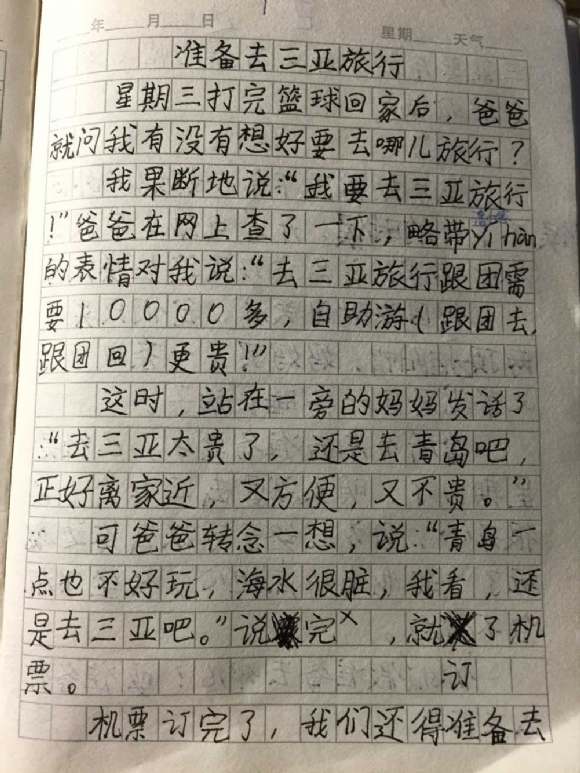 年 月 日 星期 天气
准备去三亚旅行
星期三打完篮球回家后，爸爸
就问我有没有想好要去哪儿旅行？
我果断地说：“我要去三亚旅行
！”爸爸在网上查了一下，略带yí hàn
的表情对我说：“去三亚旅行跟团需
要10000多，自助游（跟团去，
跟团回）更贵！”
这时，站在一旁的妈妈发话了
：“去三亚太贵了，还是去青岛吧，
正好离家近，又方便，又不贵。”
可爸爸转念一想，说：“青岛一
点也不好玩，海水很脏，我看，还
是去三亚吧。”说完，就了机
票。 订
机票订完了，我们还得准备去